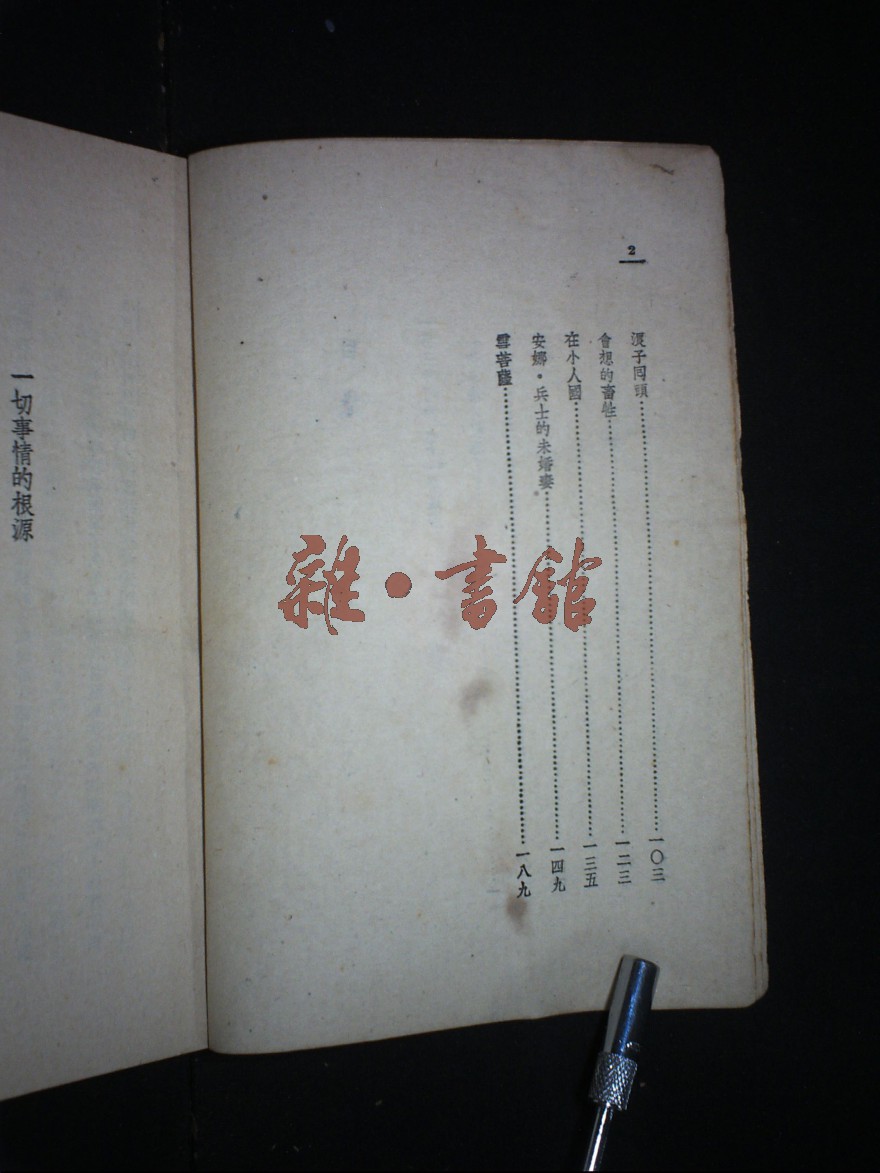 2
浪子囘頭⋯⋯⋯⋯⋯⋯⋯⋯一〇三
會想的畜牲⋯⋯⋯⋯⋯⋯⋯⋯一二三
在小人國⋯⋯⋯⋯⋯⋯⋯⋯一三五
安娜・兵士的未婚妻⋯⋯⋯⋯⋯⋯⋯⋯一四九
雪菩薩⋯⋯⋯⋯⋯⋯⋯⋯一八九
一切事情的根源
雜・書館